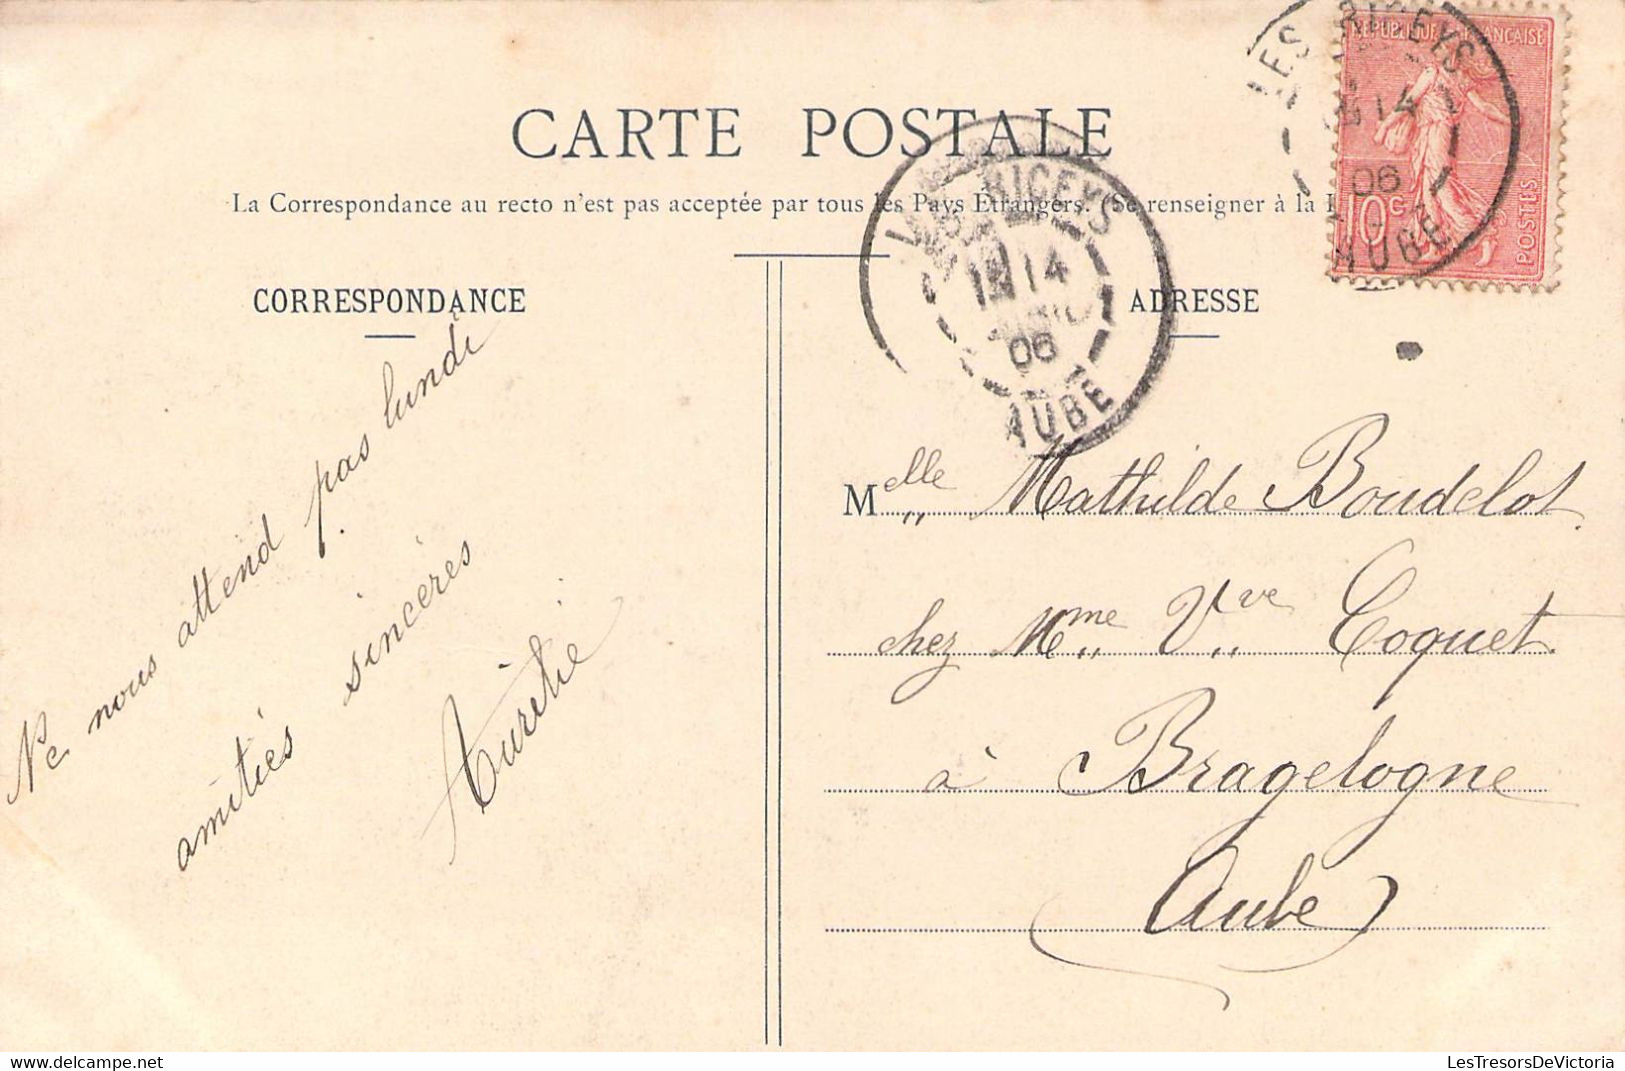 CARTE POSTALE
La Correspondance au recto n'est pas acceptée par tous les Pays Étrangers. (Se renseigner à la
CORRESPONDANCE
ADRESSE
RÉPUBLIQUE FRANÇAISE
10c
POSTES
LES RICEYS
14
06
AUBE
LES RICEYS
14
06
AUBE
Ne nous attend pas lundi
amitiés sincères
Aurélie
Melle Mathilde Boudelot
chez Mme Vve Coquet
à Bragelogne
Aube
LesTresorsDeVictoria